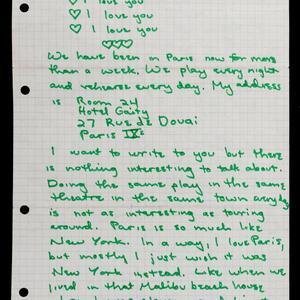 ♡ I love you
♡ I love you
♡ I love you
♡♡♡
We have been in Paris now for more
than a week. We play every night
and rehearse every day. My address
is Room 24
Hotel Gaity
27 Rue de Douai
Paris IXe
I want to write to you but there
is nothing interesting to talk about.
Doing the same play in the same
theatre in the same town everyday
is not as interesting as touring
around. Paris is so much like
New York. In a way, I love Paris,
but mostly I just wish it was
New York instead. Like when we
lived in that Malibu beach house